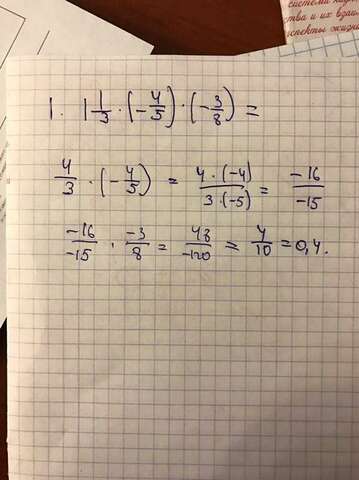 системы наук
ства и их взаи
спекты жизн
1. 1 1/3 · (-4/5) · (-3/8) =
4/3 · (-4/5) = 4·(-4)/3·(-5) = -16/-15
-16/-15 · -3/8 = 48/-120 = 4/10 = 0,4.